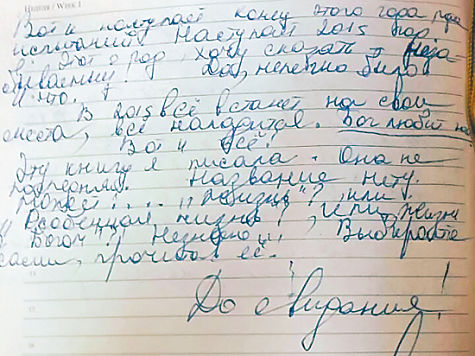 Вот и наступает конец этого года года
испытаний. Наступает 2015 год.
Этот год, хочу сказать
Да, нелегко было
и что.
В 2015 всё встанет на свои
места, всё наладится. Бог любит нас
Вот и всё!
Эту книгу я писала. Она не
Название нету.
Может: .... "Жизнь"? или
"Особенная жизнь"?, или "Жизнь
с Богом"? Незнаю!! Выбирайте
сами, прочитав её.
До свидания!